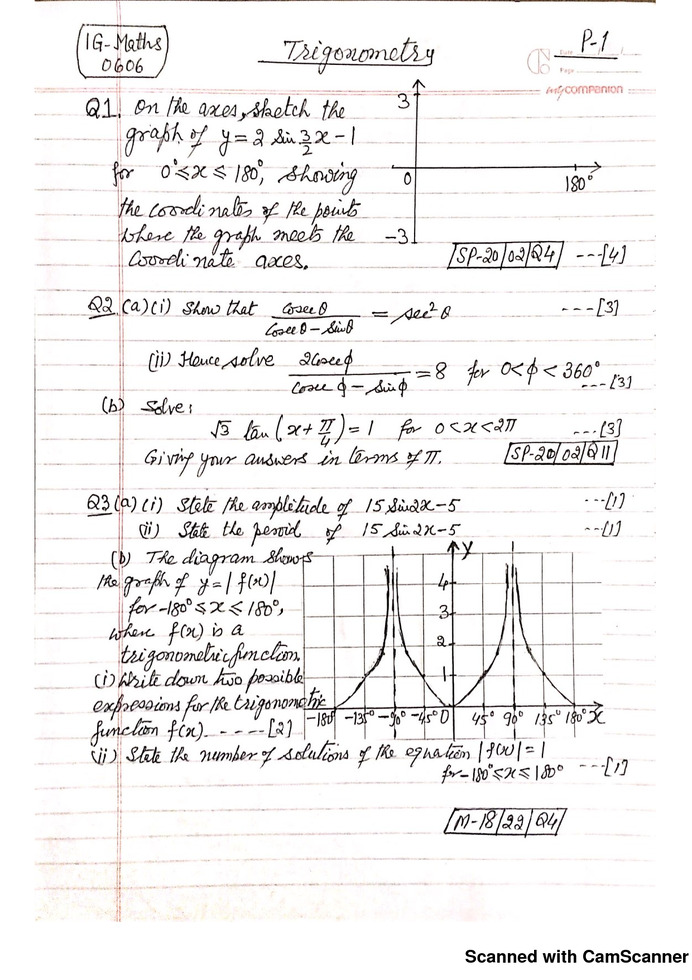 IG-Maths
0606
Trigonometry
P-1
Date
Page
companion
Q1. On the axes, sketch the
graph of y = 2 sin 3/2 x - 1
for 0° ≤ x ≤ 180°, showing
the coordinates of the points
where the graph meets the
coordinate axes.
3
0
180°
-3
SP-20/02/Q4 ---[4]
Q2 (a)(i) Show that cosec θ / (cosec θ - sin θ) = sec² θ ---[3]
(ii) Hence, solve 2cosec ϕ / (cosec ϕ - sin ϕ) = 8 for 0 < ϕ < 360° ---[3]
(b) Solve:
√3 tan (x + π/4) = 1 for 0 < x < 2π ---[3]
Giving your answers in terms of π. SP-20/02/Q11
Q3 (a) (i) State the amplitude of 15 sin 2x - 5 ---[1]
(ii) State the period of 15 sin 2x - 5 ---[1]
(b) The diagram shows
the graph of y = |f(x)|
for -180° ≤ x ≤ 180°,
where f(x) is a
trigonometric function.
(i) Write down two possible
expressions for the trigonometric
function f(x). ----[2]
y
4
3
2
1
-180° -135° -90° -45° 0 45° 90° 135° 180° x
(ii) State the number of solutions of the equation |f(x)| = 1
for -180° ≤ x ≤ 180° ---[1]
M-18/22/Q4
Scanned with CamScanner